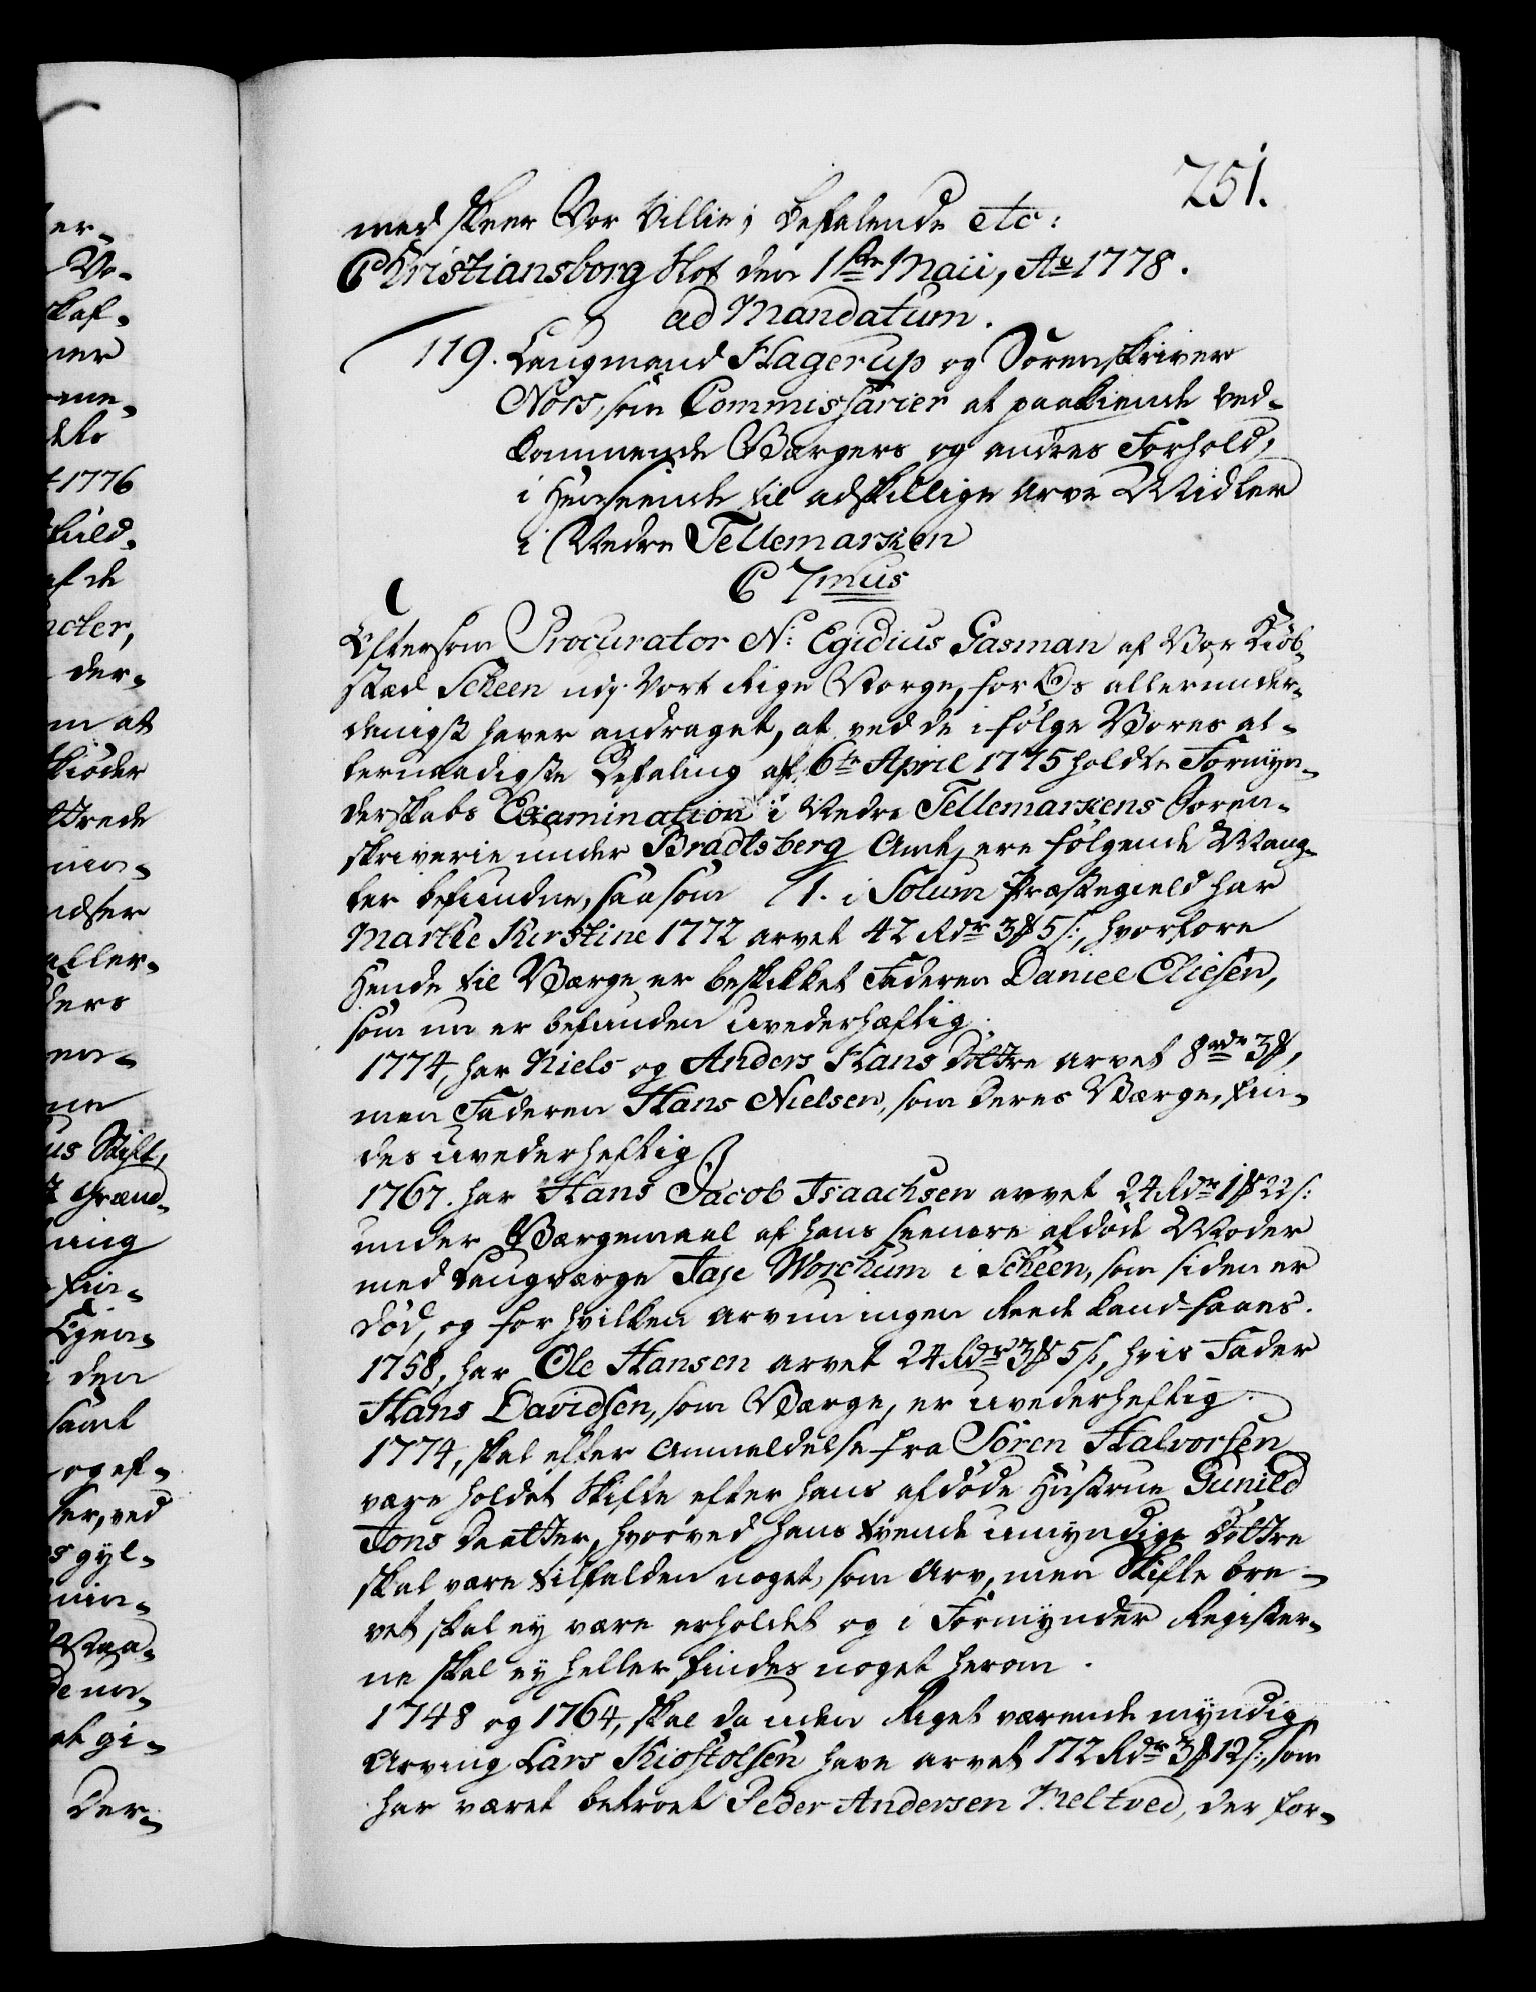 251.
med skeer Vor Villie; Befalende etc:
Christiansborg Slot den 1ste Maii, Ao 1778.
ad Mandatum.
119. Laugmand Hagerup og Sorenskriver
Nors, som Commissarier at paakiende ved-
kommende Værgers og andres Forhold,
i Henseende til adskillige Arve Midler
i Nedre Tellemarken
C 7mus
Eftersom Procurator N: Egidius Gasman af Vor Kiøb-
stæd Scheen udj Vort Rige Norge, for Os allerunder-
danigst haver andraget, at ved de ifølge Vores al-
lernaadigste Befaling af 6te April 1775 holdte Formyn-
derskabs Examination i Nedre Tellemarkens Soren-
skriverie under Bradtsberg Amt, ere følgende Mang-
ler befundne, saasom 1. i Solum Præstegield har
Marthe Kirstine 1772 arvet 42 Rdr 3 ß 5 s:, hvorfore
Hende til Værge er beskikket Faderen Daniel Eliesen,
som nu er befunden uvederhæftig.
1774, har Niels og Anders Hans Døttre arvet 8 rdr 3 ß,
men Faderen Hans Nielsen, som deres Værge, fin-
des uvederheftig
1767. har Hans Jacob Isaachsen arvet 24 Rdr 1 ß 22 s:
under Værgemaal af hans seenere afdøde Moder
med Laugværge Jase Worchum i Scheen, som siden er
død, og for hvilken Arv nu ingen Reede kand faaes.
1758, har Ole Hansen arvet 24 Rdr 3 ß 5 s:, hvis Fader
Hans Davidsen, som Værge, er uvederheftig.
1774, skal efter Anmeldelse fra Søren Halvorsen
være holdet Skifte efter hans afdøde Hustrue Gunild
Jons Daatter, hvorved hans tvende umyndige Døttre
skal være tilfalden noget, som Arv, men Skifte bre-
vet skal ey være erholdet og i Formynder Register-
ne skal ey heller findes noget herom.
1748 og 1764, skal da uden Riget værende myndig
Arving Lars Kiostolsen have arvet 172 Rdr 3 ß 12 s:, som
har været betroet Peder Andersen Meltved, der for-